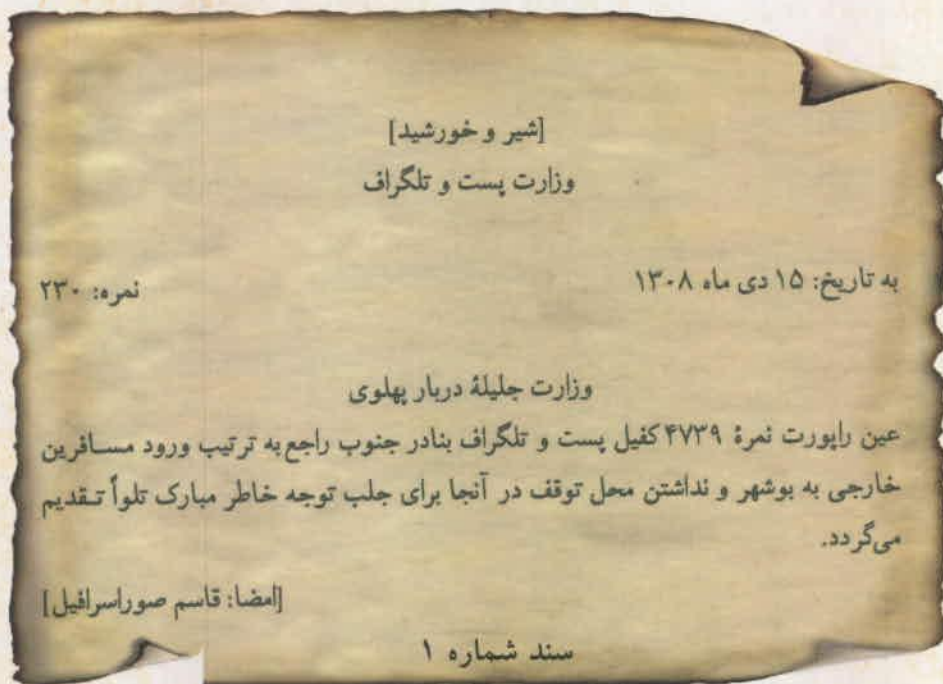 [شیر و خورشید]
وزارت پست و تلگراف
به تاریخ: ۱۵ دی ماه ۱۳۰۸
نمره: ۲۳۰
وزارت جلیلهٔ دربار پهلوی
عین راپورت نمرهٔ ۴۷۳۹ کفیل پست و تلگراف بنادر جنوب راجع به ترتیب ورود مسافرین
خارجی به بوشهر و نداشتن محل توقف در آنجا برای جلب توجه خاطر مبارک تلواً تقدیم
می‌گردد.
[امضا: قاسم صوراسرافیل]
سند شماره ۱